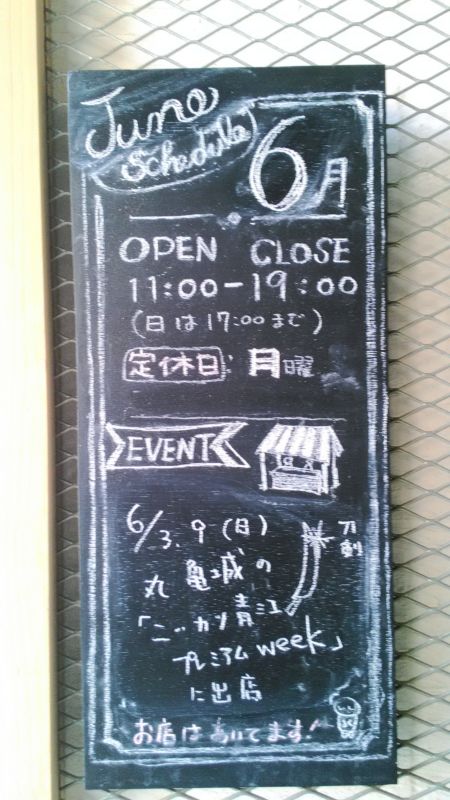 June
Schedule
6月
OPEN CLOSE
11:00-19:00
(日は17:00まで)
定休日: 月曜
EVENT
6/3.9(日)
丸亀城の
「ニッカリ青江
プレミアムweek」
に出店
刀剣
お店はあいてます!